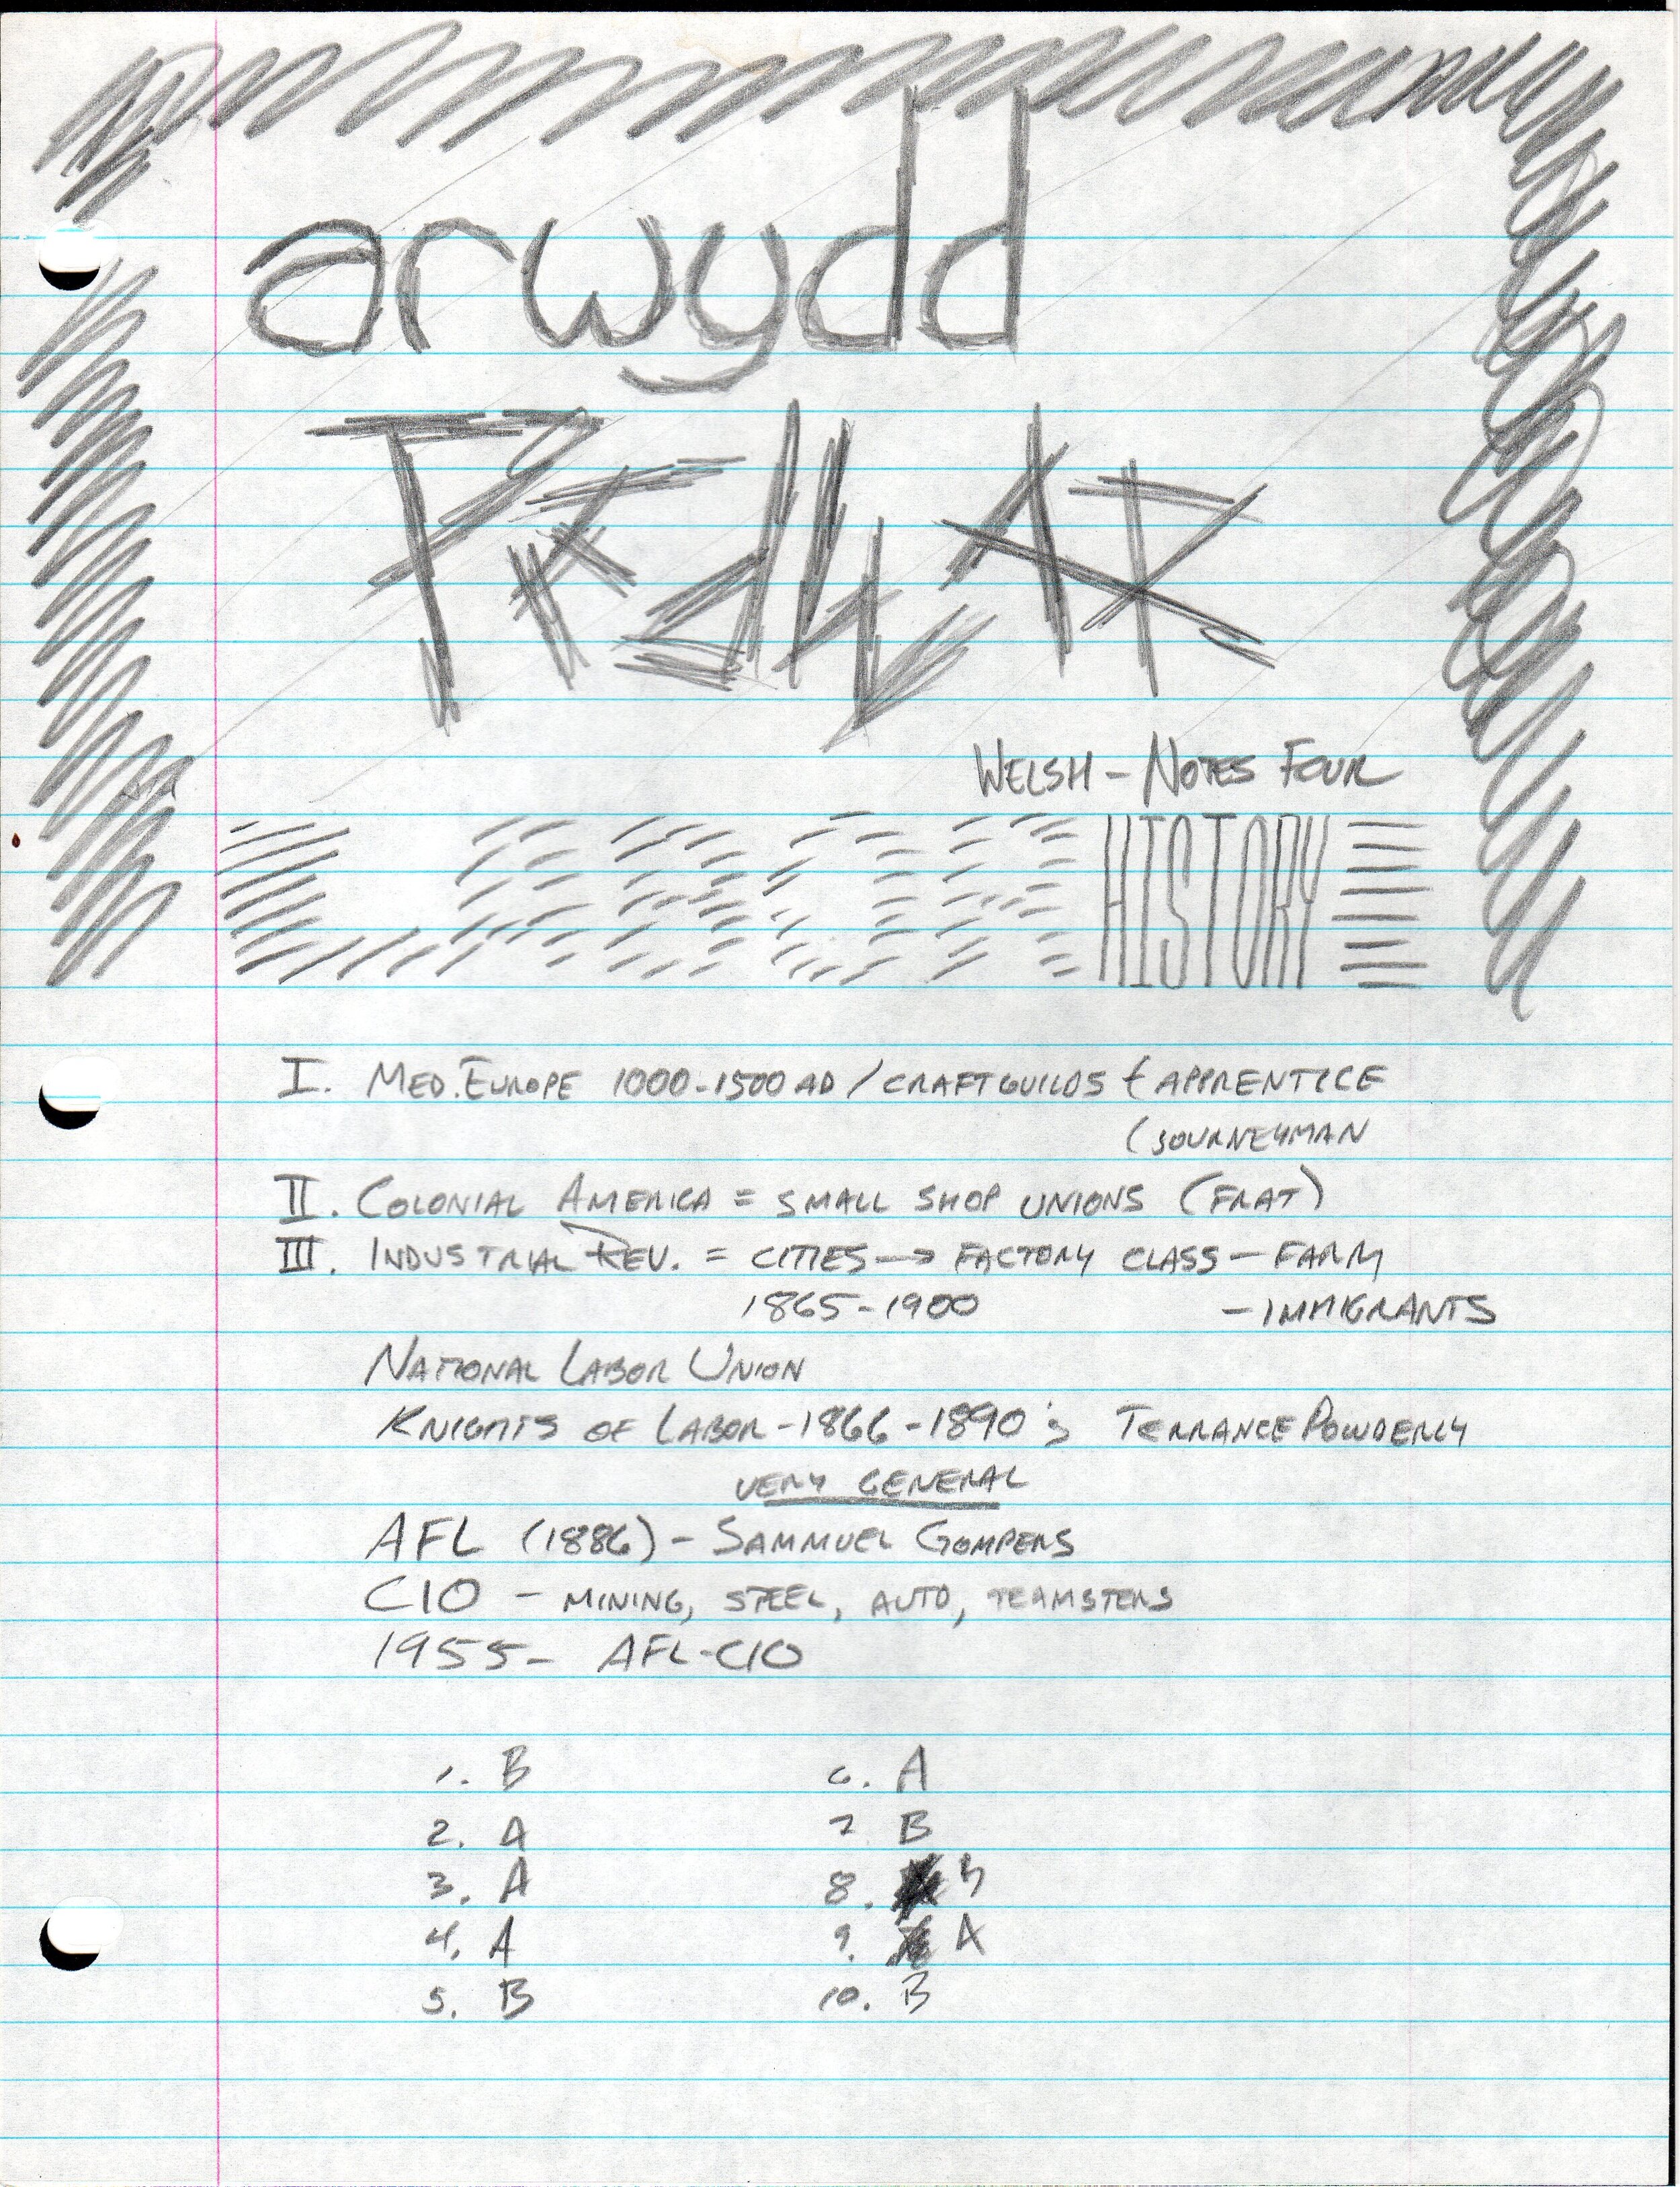 arwydd
WELSH - NOTES FOUR
HISTORY
I. MED. EUROPE 1000-1500 AD / CRAFT GUILDS { APPRENTICE
( JOURNEYMAN
II. COLONIAL AMERICA = SMALL SHOP UNIONS (FRAT)
III. INDUSTRIAL REV. = CITIES → FACTORY CLASS - FARM
1865-1900 - IMMIGRANTS
NATIONAL LABOR UNION
KNIGHTS OF LABOR - 1866 - 1890's TERRANCE POWDERLY
VERY GENERAL
AFL (1886) - SAMMUEL GOMPERS
CIO - MINING, STEEL, AUTO, TEAMSTERS
1955 - AFL-CIO
1. B 6. A
2. A 7 B
3. A 8. B
4. A 9. A
5. B 10. B